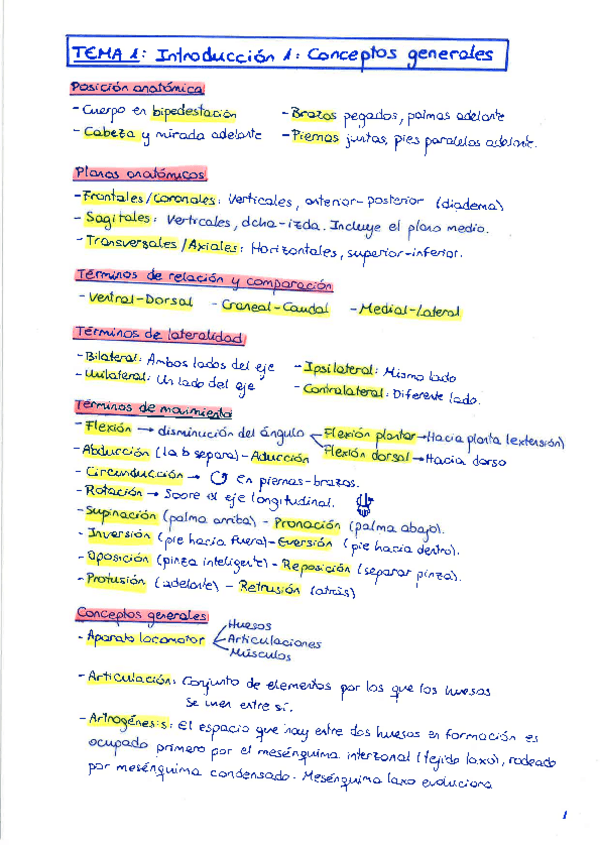 TEMA 1: Introducción 1: Conceptos generales
Posición anatómica
- Cuerpo en bipedestación - Brazos pegados, palmas adelante
- Cabeza y mirada adelante - Piernas juntas, pies paralelos adelante.
Planos anatómicos
- Frontales/Coronales: Verticales, anterior-posterior (diadema)
- Sagitales: Verticales, dcha-izda. Incluye el plano medio.
- Transversales/Axiales: Horizontales, superior-inferior.
Términos de relación y comparación
- Ventral-Dorsal - Craneal-Caudal - Medial-Lateral
Términos de lateralidad
- Bilateral: Ambos lados del eje - Ipsilateral: Mismo lado
- Unilateral: Un lado del eje - Contralateral: Diferente lado.
Términos de movimiento
- Flexión → disminución del ángulo Flexión plantar → Hacia planta (extensión)
- Abducción (la b separa) - Aducción Flexión dorsal → Hacia dorso
- Circunducción → en piernas-brazos.
- Rotación → Sobre el eje longitudinal.
- Supinación (palma arriba) - Pronación (palma abajo).
- Inversión (pie hacia fuera) - Eversión (pie hacia dentro).
- Oposición (pinza inteligente) - Reposición (separar pinza).
- Protusión (adelante) - Retrusión (atrás)
Conceptos generales
- Aparato locomotor Huesos
Articulaciones
Músculos
- Articulación: Conjunto de elementos por los que los huesos
se unen entre sí.
- Artrogénesis: El espacio que hay entre dos huesos en formación es
ocupado primero por el mesénquima interzonal (tejido laxo), rodeado
por mesénquima condensado. Mesénquima laxo evoluciona
1